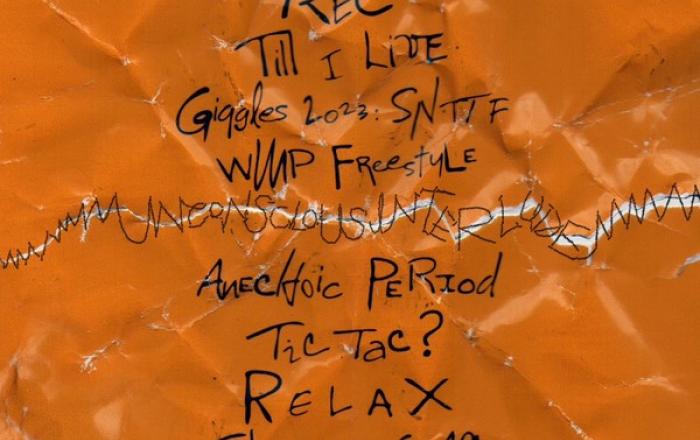 REC
Till I LiVE
Giggles 2023: SNTTF
WMP FreestyLE
UNCONSCIOUS INTERLUDE
AnecHoic PERIod
Tic Tac?
RELAX